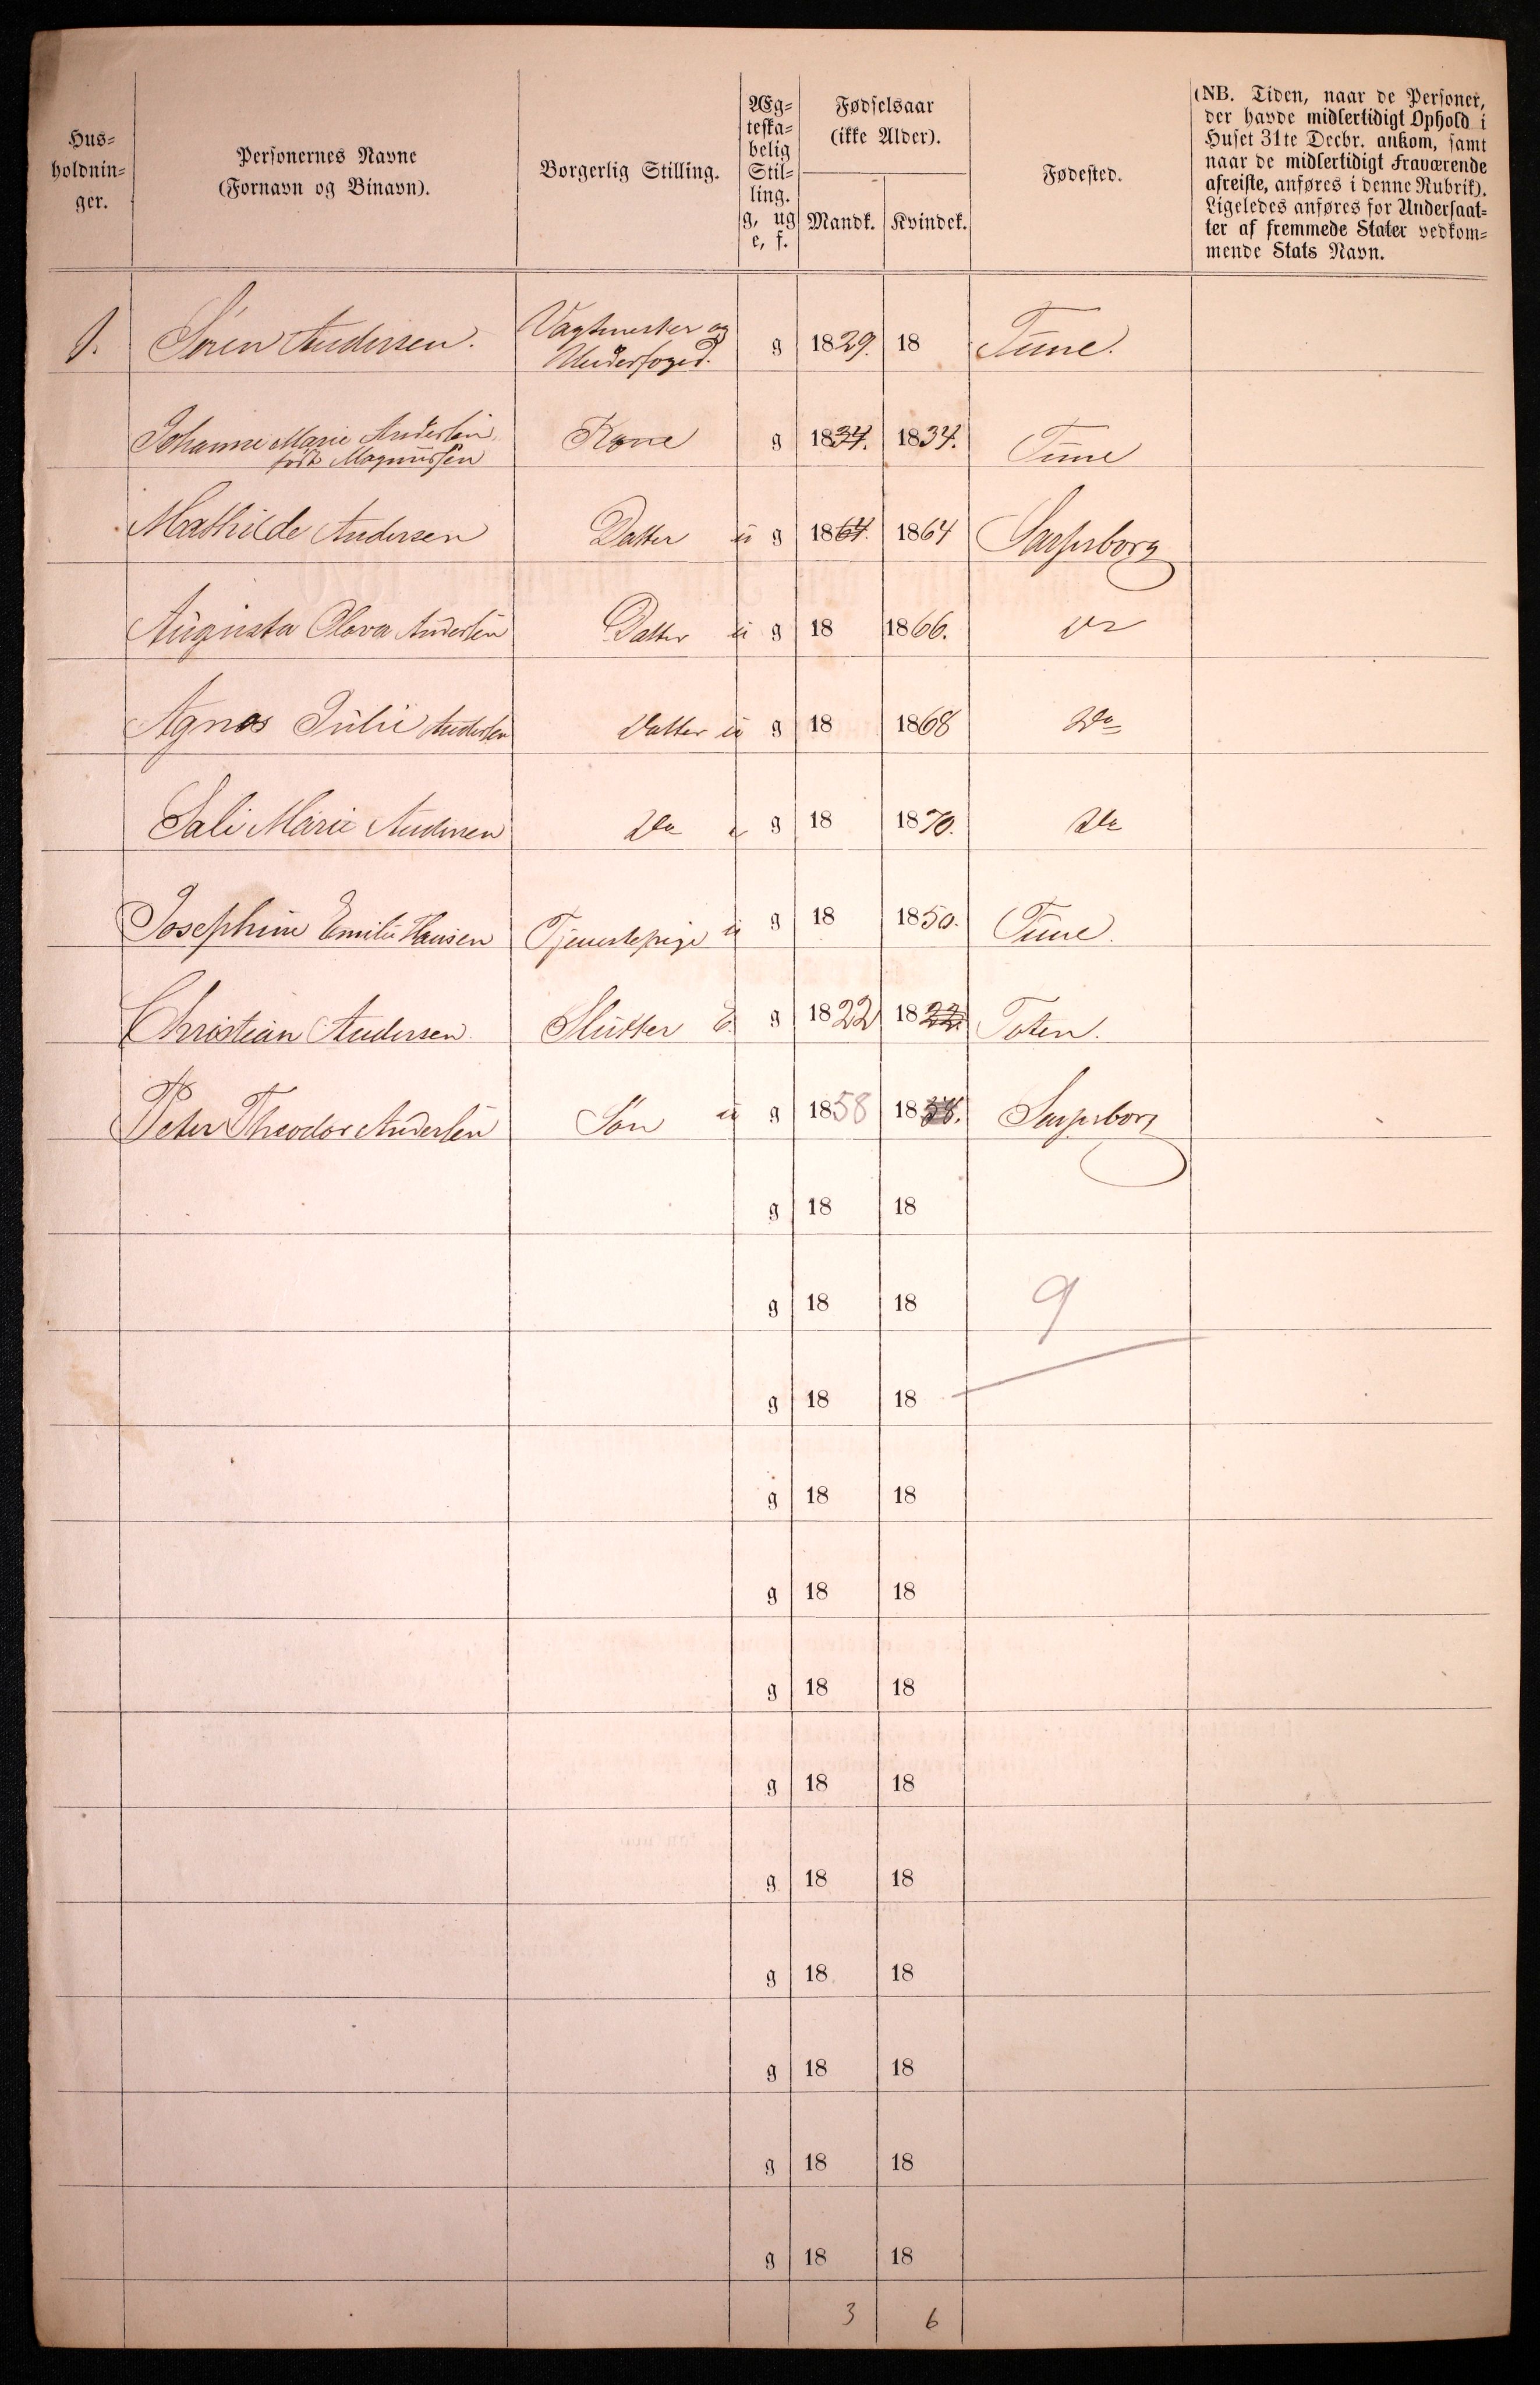 Hus-
holdnin-
ger.
Personernes Navne
(Fornavn og Binavn).
Borgerlig Stilling.
Æg-
teska-
belig
Stil-
ling.
g, ug
e, f.
Fødselsaar
(ikke Alder).
Mandk. Kvindek.
Fødested.
(NB. Tiden, naar de Personer,
der havde midlertidigt Ophold i
Huset 31te Decbr. ankom, samt
naar de midlertidigt Fraværende
afreiste, anføres i denne Rubrik).
Ligeledes anføres for Undersaat-
ter af fremmede Stater vedkom-
mende Stats Navn.
1. Sören Andersen. Vagtmester og
Underfoged. g 1829. 18 Tune.
Johanne Marie Andersen
født Magnussen Kone g 1834. 1834. Tune
Mathilde Andersen Datter u g 1864. 1864 Sarpsborg
Augusta Olava Andersen Datter u g 18 1866. Do
Agnes Julie Andersen Datter u g 18 1868 Do
Sali Marie Andersen Do u g 18 1870. Do
Josephine Emilie Hansen Tjenestepige u g 18 1850. Tune.
Christian Andersen Slutter E. g 1822 1822. Toten.
Peter Theodor Andersen Sön u g 1858 1858. Sarpsborg
g 18 18
g 18 18 9
g 18 18
g 18 18
g 18 18
g 18 18
g 18 18
g 18 18
g 18 18
g 18 18
g 18 18
g 18 18
3 6